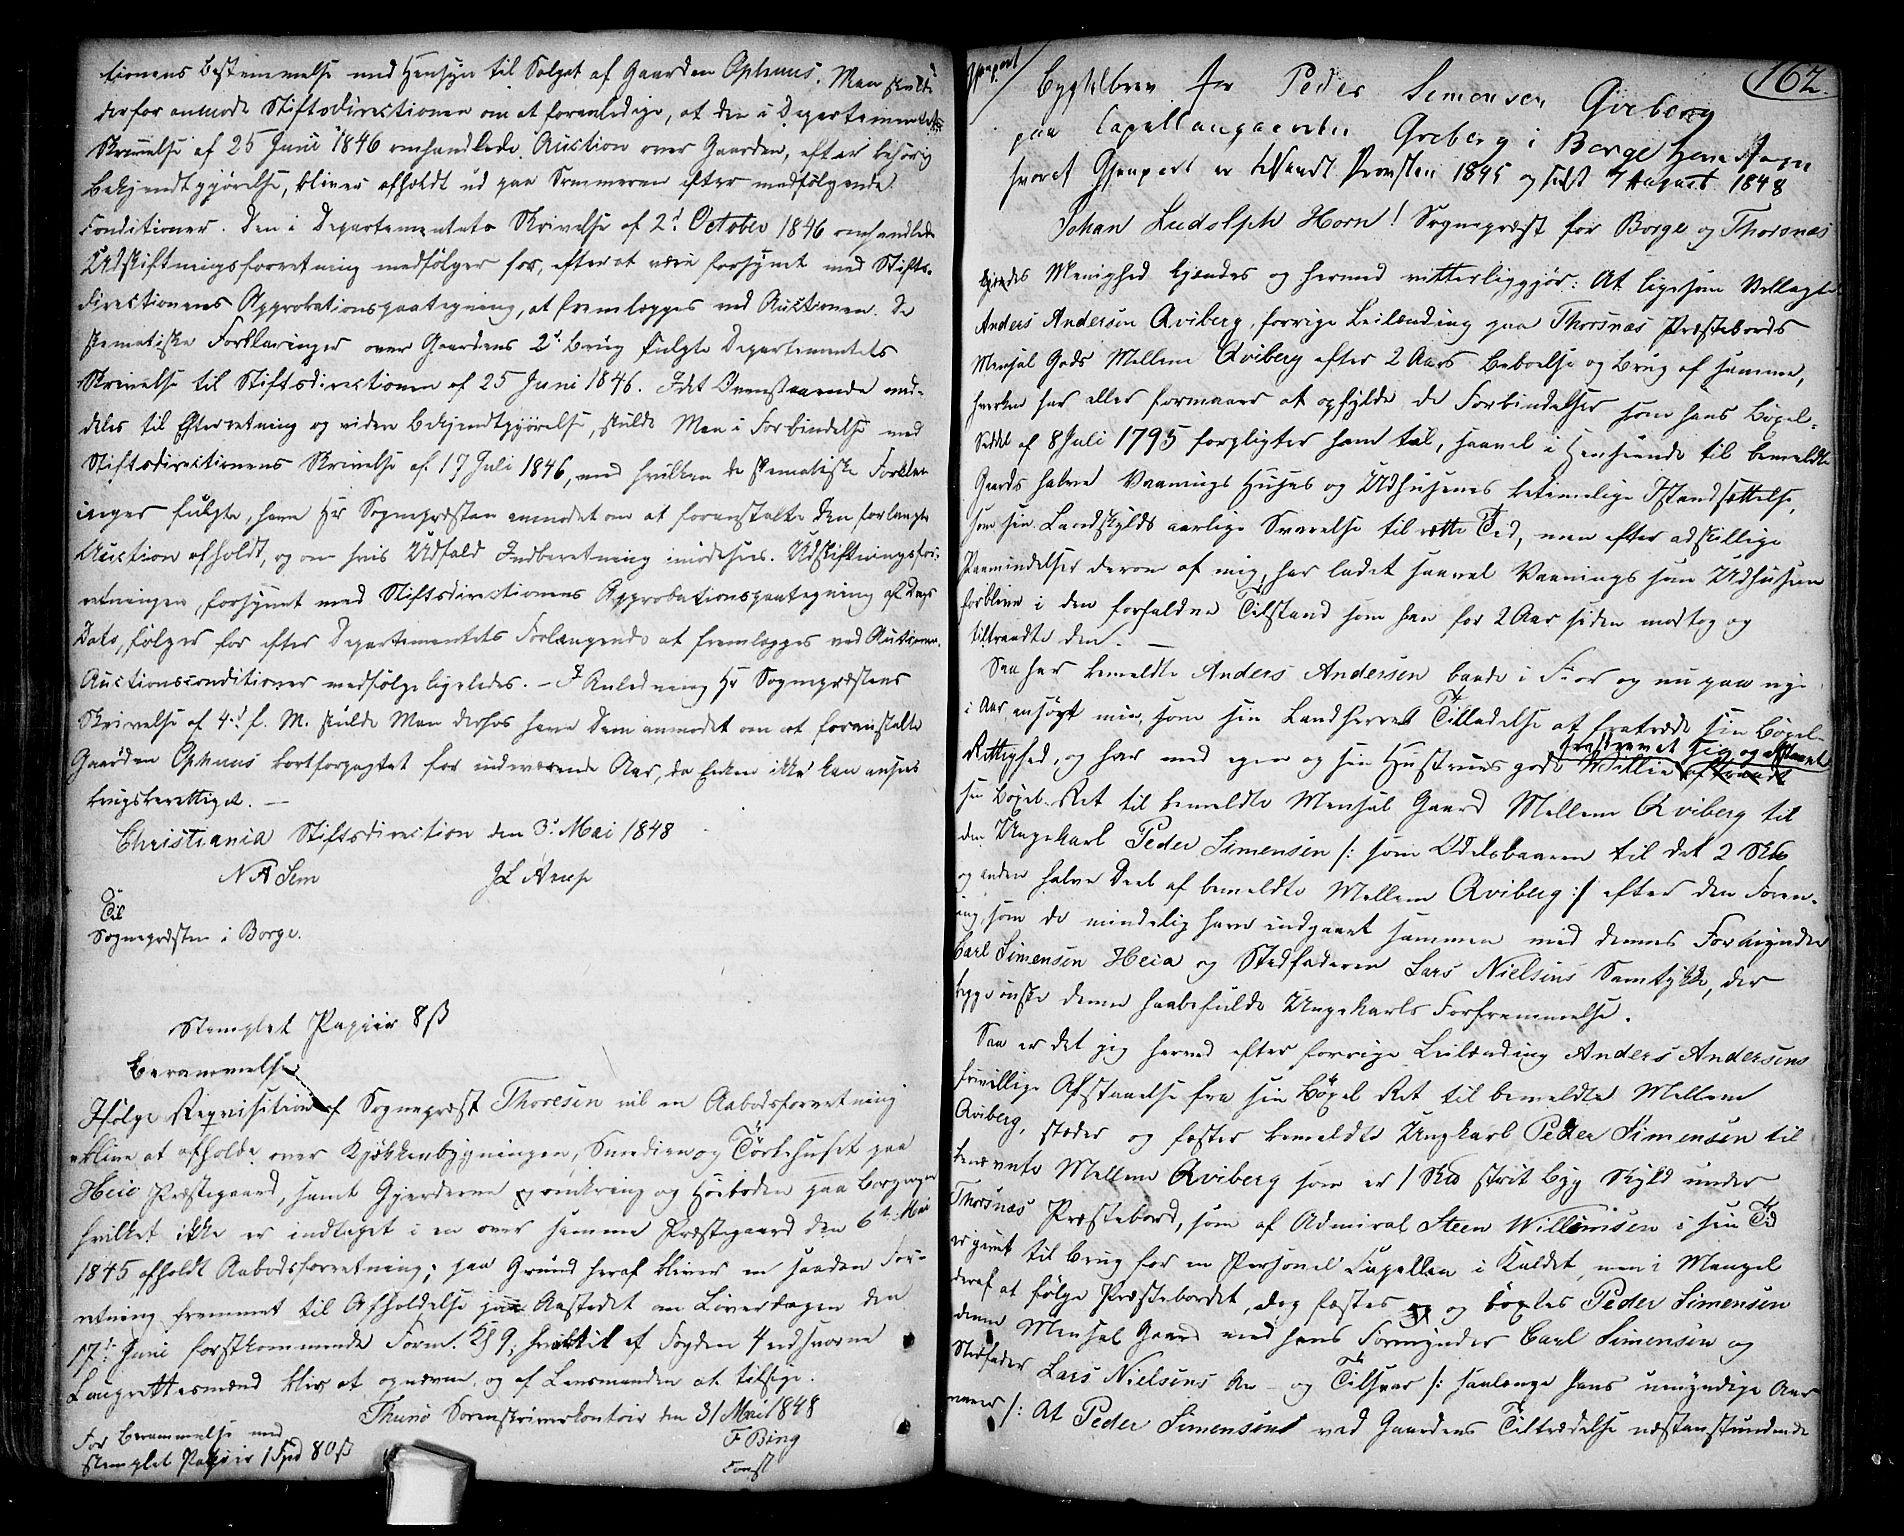 tionens Bestemmelse med Hensyn til Salget af Gaarden Ophuus. Man skulde
derfor anmode Stiftsdirectionen om at foranledige, at den i Departementets
Skrivelse af 25 Juni 1846 omhandlede Auction over Gaarden, efter behørig
Bekjendtgjørelse, bliver afholdt ud paa Sommeren efter medfølgende
Conditioner. Den i Departementets Skrivelse af 2d October 1846 omhandlede
Udskiftningsforretning medfølger for, efterat være forsynet med Stifts-
directionens Approbationspaategning, at fremlægges ved Auctionen. De
skematiske Forklaringer over Gaardens 2de Brug fulgte Departementets
Skrivelse til Stiftsdirectionen af 25 Juni 1846. Idet Ovenstaaende med-
deles til Efterretning og videre Bekjendtgjørelse, skulde Man i Forbindelse med
Stiftsdirectionens Skrivelse af 17 Juli 1846, med hvilken de skematiske Forklar
inger fulgte, have Hr Sognepræsten anmodet om at foranstalte den forlangte
Auction afholdt, og om hvis Udfald Indberetning imødesees. Udskiftningsfor-
retningen, forsynet med Stiftsdirectionens Approbationspaategning af Dags
Dato, følger for efter Departementets Forlangende at fremlægges ved Auctionen.
Auctionsconditioner medfølge ligeledes. – I Anledning Hr Sognepræstens
Skrivelse af 4de f. M. skulde Man derhos have Dem anmodet om at foranstalte
Gaarden Ophuus bortforpagtet for indeværende Aar, da Enken ikke kan ansees
brugsberettiget. –
Christiania Stiftsdirection den 3d Mai 1848
N A Sem JL Arup
Til
Sognepræsten i Borge.
Stemplet Papiir 8 ß
Berammelse
Ifølge Requisition af Sognepræst Thoresen vil en Aabodsforretning
blive at afholde over Kjøkkenbygningen, Smedien og Tørkehuset paa
Heie Præstegaard, samt Gjerderne omkring og Høiboden paa Borge
hvilket ikke er indtaget i en over samme Præstegaard den 6te Mai
1845 afholdt Aabodsforretning; paa Grund heraf bliver en saadan For-
retning fremmet til Afholdelse paa Aastedet om Løverdagen den
17de Juni førstkommende Form. Kl 9, hvortil af Fogden 4 edsvorne
Laugrettesmænd blive at opnævne, og af Lensmanden at tilsige.
Thunø Sorenskriverkontoir den 31 Mai 1848
For Berammelse med F Bing
stemplet Papiir 1 Spd 80 ß Const
Gjenpart 162.
Bygselbrev for Peder Simensen Greberg
paa Capellangaarden Greberg i Borge Hovedsogn
hvoraf Gjenpart er tilsendt Provsten 1845 og sidst 4 August 1848
Johan Ludolph Horn! Sognepræst for Borge og Thorsnæs
Menighed kjendes og hermed vitterliggjør: At ligesom Vellagte
Anders Andersen Qviberg, forrige Leilænding paa Thorsnæs Præstebords
Mensal Gods Mellem Qviberg efter 2 Aars Beboelse og Brug af samme,
hverken har eller formaaer at opfylde de Forbindelser som hans Bøxel-
Seddel af 8 Juli 1795 forpligter ham til, saavel i Henseende til bemeldte
Gaards halve Vaanings Huses og Udhusenes betimelige Istandsættelse,
som sin Landskylds aarlige Svarelse til rette Tid, men efter adskillige
Paamindelser derom af mig, har ladet saavel Vaanings som Udhusene
forblive i den forfaldne Tilstand som han for 2 Aar siden modtog og
tiltraadte den. –
Saa har bemeldte Anders Andersen baade i Fior og nu paa nye
i Aar ansøgt mig, som sin Landherres Tilladelse at fratræde sin Bøxel-
Rettighed, og har med egen og sin Hustrues gode Villie frasagt sig og afstaaet
sin Bøxel-Ret til bemeldte Mensal Gaard Mellem Qviberg til
den Ungekarl Peder Simensen /: som Odelsbaaren til det 2 Skd
og anden halve Deel af bemeldte Mellem Qviberg :/ efter den Foren-
ing, som de mindelig have indgaaet sammen med dennes Formynder
Carl Simensen Heia og Stedfaderen Lars Nielsens Samtykke, der
begge ønske denne haabefulde Ungekarls Forfremmelse.
Saa er det jeg herved efter forrige Leilænding Anders Andersens
frivillige Afstaaelse fra sin Bøxel Ret til bemeldte Mellem
Qviberg, steder og fæster bemeldte Ungkarl Peder Simensen til
benævnte Mellem Qviberg som er 1 Skd sπit Byg Skyld under
Thorsnæs Præstebord, som af Admiral Steen Willumsen i sin Tid
er givet til Brug for en Personel Capellan i Kaldet, men i Mangel
deraf at følge Præstebordet, dog fæstes og bøxles Peder Simensen
denne Mensal Gaard med hans Formynder Carl Simensen og
Stedfader Lars Nielsens An- og Tilsvar /: saalænge hans umyndige Aar
varer :/ At Peder Simensen ved Gaardens Tiltrædelse næstanstundende